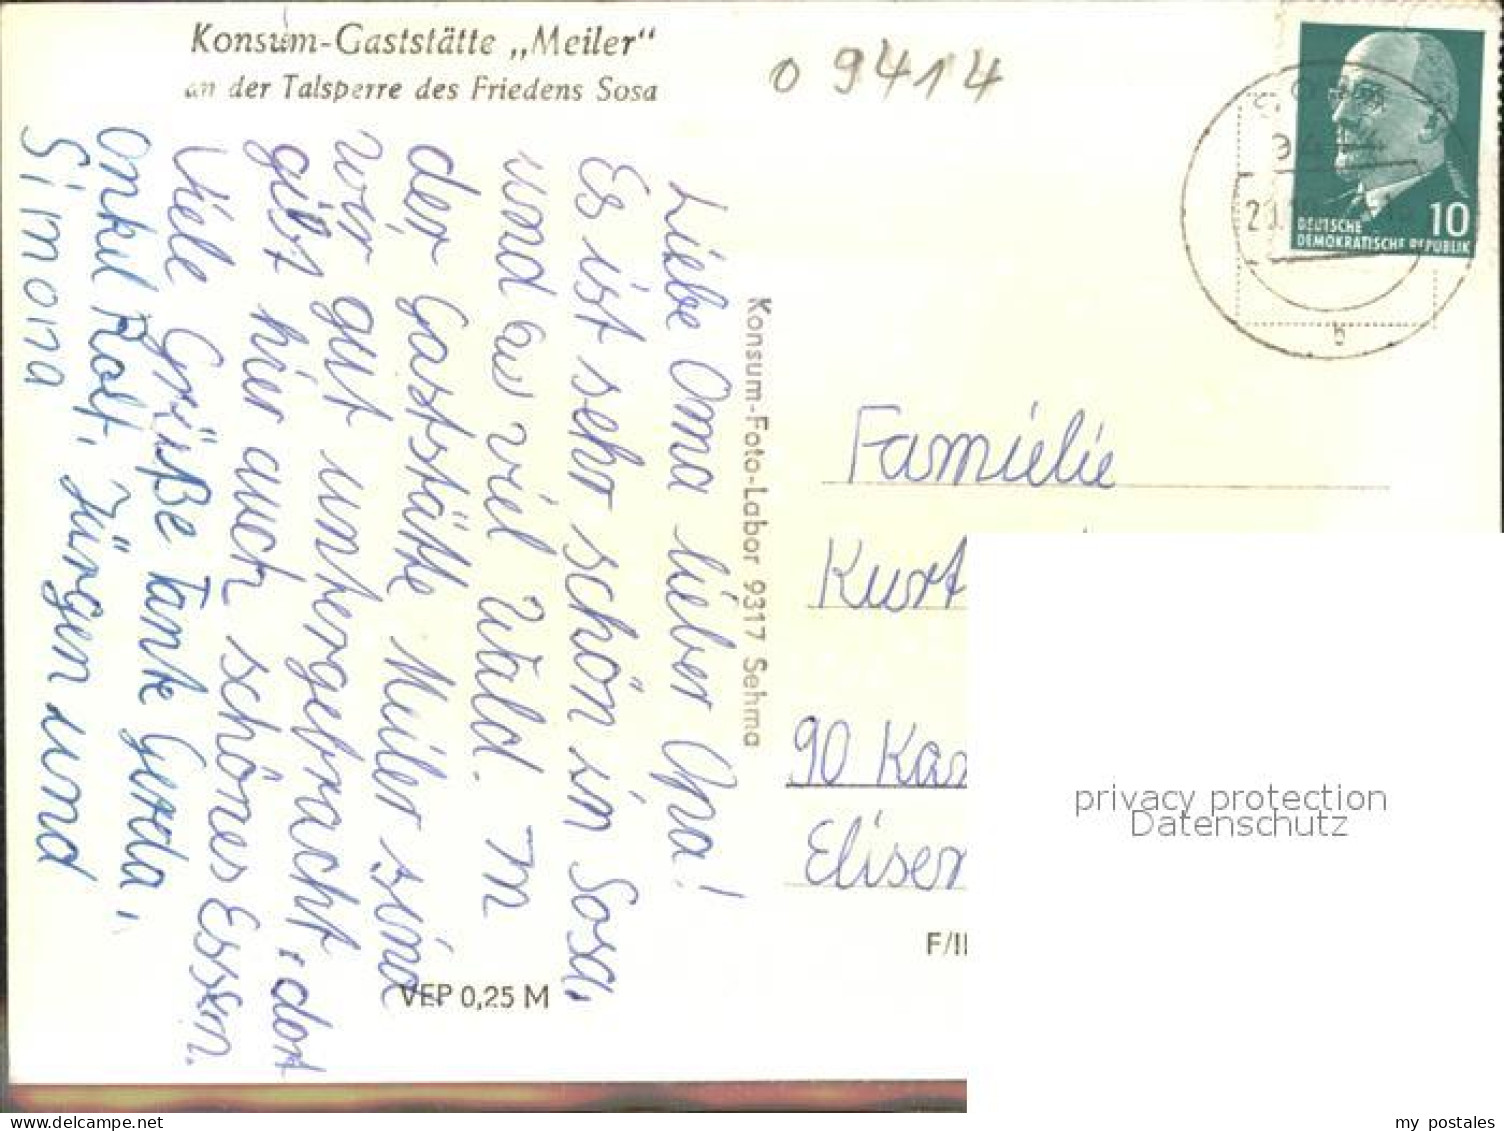 Konsum-Gaststätte „Meiler"
an der Talsperre des Friedens Sosa
o 9414
DEUTSCHE
DEMOKRATISCHE REPUBLIK
10
b
Liebe Oma lieber Opa!
Es ist sehr schön in Sosa,
und au viel Wald. In
der Gaststätte Meiler sind
wir gut untergebracht, dort
gibt hier auch schönes Essen.
Viele Grüße Tante Gerda,
onkel Rolf, Jürgen und
Simona
Konsum-Foto-Labor 9317 Sehma
Familie
Kurt
90 Kar
Eliser
F/II
VEP 0,25 M
privacy protection
Datenschutz
my postales